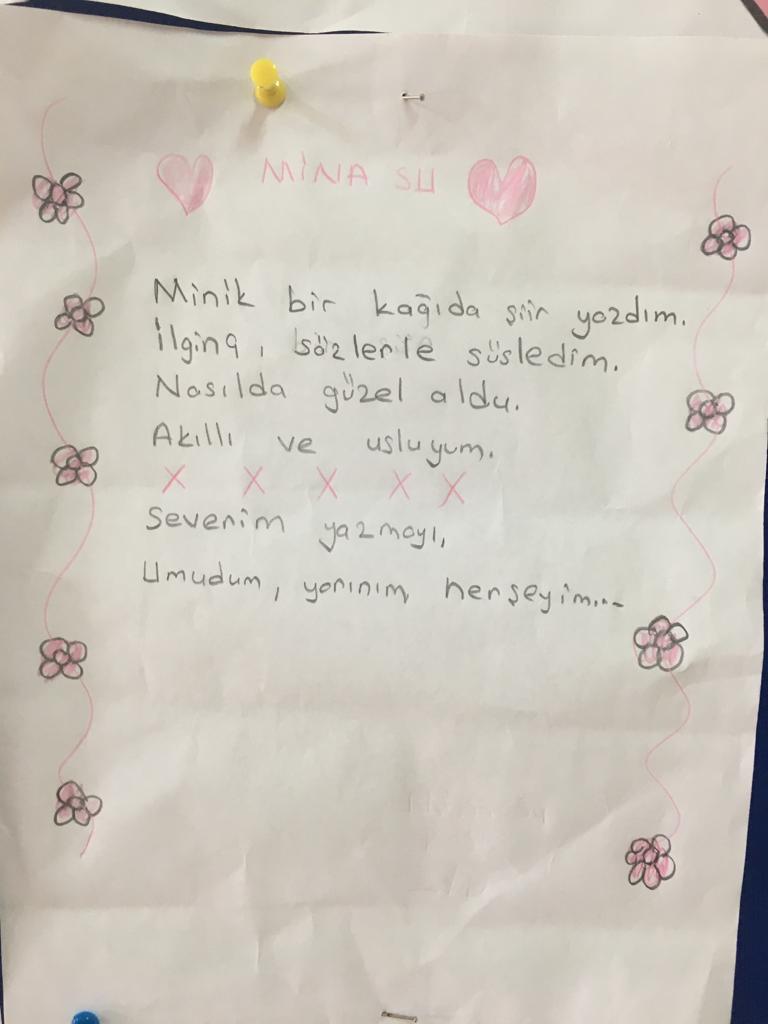 MİNA SU
Minik bir kağıda şiir yazdım.
İlginç, sözlerle süsledim.
Nasılda güzel oldu.
Akıllı ve usluyum.
X X X X X
Severim yazmayı,
Umudum, yarınım, herşeyim...